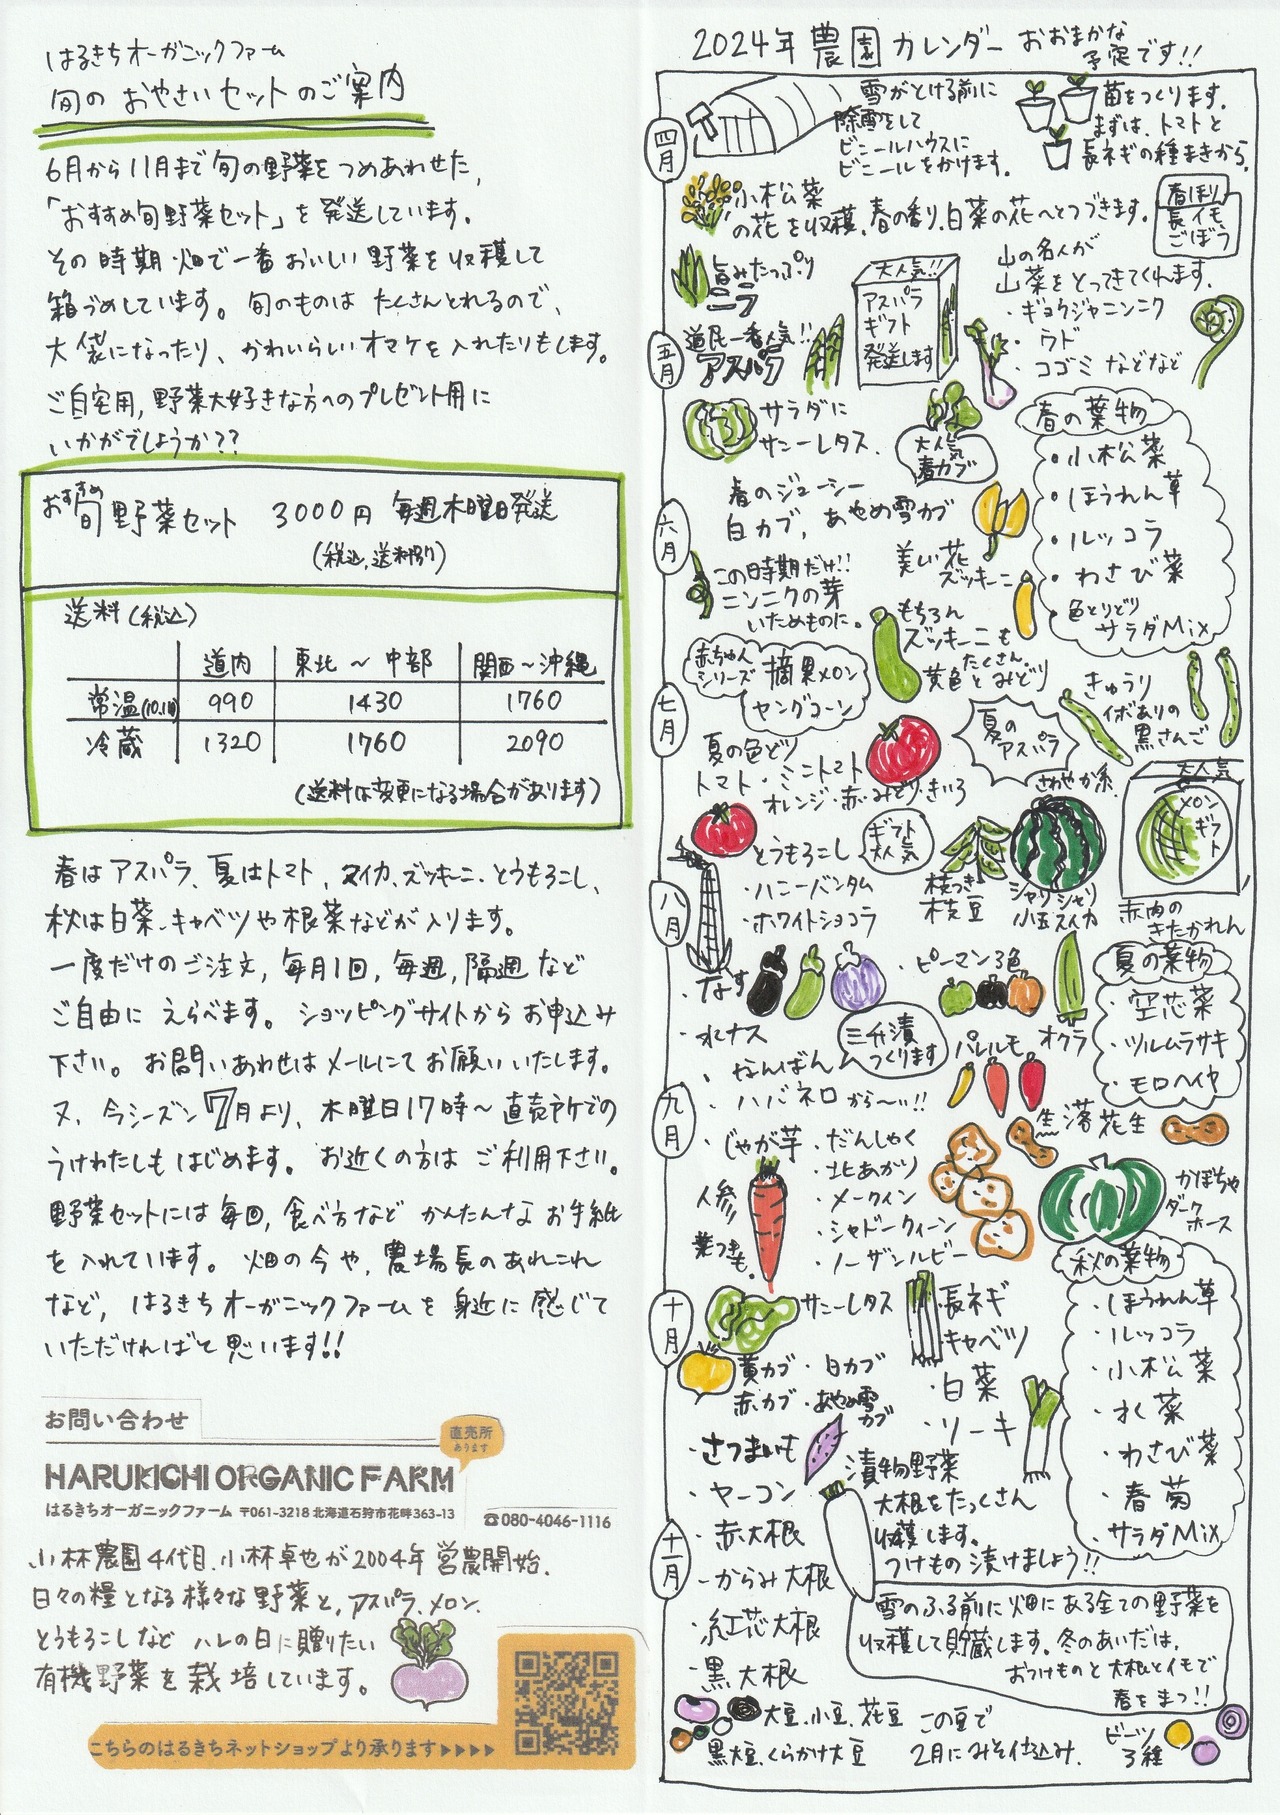 はるきちオーガニックファーム
旬の おやさいセットのご案内
6月から11月まで旬の野菜をつめあわせた、
「おすすめ旬野菜セット」を発送しています。
その時期、畑で一番おいしい野菜を収穫して
箱づめしています。旬のものは たくさんとれるので、
大袋になったり、かわいらしいオマケを入れたりもします。
ご自宅用、野菜大好きな方へのプレゼント用に
いかがでしょうか??
おすすめ旬野菜セット 3000円 毎週木曜日発送
(税込、送料別)
送料(税込)
道内 東北〜中部 関西〜沖縄
常温(10.11月) 990 1430 1760
冷蔵 1320 1760 2090
(送料は変更になる場合があります)
春はアスパラ、夏はトマト、スイカ、ズッキーニ、とうもろこし、
秋は白菜、キャベツや根菜などが入ります。
一度だけのご注文、毎月1回、毎週、隔週など
ご自由に えらべます。ショッピングサイトからお申込み
下さい。お問いあわせはメールにてお願いいたします。
又、今シーズン7月より、木曜日17時〜直売所での
うけわたしもはじめます。お近くの方は ご利用下さい。
野菜セットには毎回、食べ方など かんたんな お手紙
を入れています。畑の今や、農場長のあれこれ
など、はるきちオーガニックファームを身近に感じて
いただければと思います!!
お問い合わせ
直売所
あります
HARUKICHI ORGANIC FARM
はるきちオーガニックファーム 〒061-3218 北海道石狩市花畔363-13 ☎080-4046-1116
小林農園4代目、小林卓也が2004年営農開始。
日々の糧となる様々な野菜と、アスパラ、メロン、
とうもろこしなど ハレの日に贈りたい
有機野菜を栽培しています。
こちらのはるきちネットショップより承ります▶▶▶▶
2024年 農園カレンダー おおまかな
予定です!!
四月
雪がとける前に
除雪をして
ビニールハウスに
ビニールをかけます。
苗をつくります。
まずは、トマトと
長ネギの種まきから。
小松菜
の花を収穫。春の香り。白菜の花へとつづきます。
春ほり
長イモ
ごぼう
旨みたっぷり
ニラ
大人気!!
アスパラ
ギフト
発送します
山の名人が
山菜をとってきてくれます。
・ギョウジャニンニク
・ウド
・コゴミ などなど
五月
道民一番人気!!
アスパラ
サラダに
サニーレタス
大人気
春カブ
春の葉物
・小松菜
・ほうれん草
・ルッコラ
・わさび菜
・色とりどり
サラダMix
春のジューシー
白カブ、あやめ雪カブ
六月
美しい花
ズッキーニ
この時期だけ!!
ニンニクの芽
いためものに。
もちろん
ズッキーニも
たくさん
黄色とみどり
赤ちゃん
シリーズ
摘果メロン
ヤングコーン
七月
きゅうり
イボありの
黒さんご
夏の
アスパラ
さわやか系
夏の色どり
トマト・ミニトマト
オレンジ・赤・みどり・きいろ
大人気
メロン
ギフト
赤肉の
きたかれん
とうもろこし
・ハニーバンタム
・ホワイトショコラ
ギフト
大人気
枝つき
枝豆
シャリシャリ
小玉スイカ
八月
・なす
・水ナス
・ピーマン3色
オクラ
夏の葉物
・空芯菜
・ツルムラサキ
・モロヘイヤ
三升漬
つくります
・なんばん
・ハバネロ から〜い!!
パレルモ
九月
生落花生
・じゃが芋
・だんしゃく
・北あかり
・メークイン
・シャドークイーン
・ノーザンルビー
人参
葉つきも。
かぼちゃ
ダーク
ホース
秋の葉物
・ほうれん草
・ルッコラ
・小松菜
・水菜
・わさび菜
・春菊
・サラダMix
十月
サニーレタス
長ネギ
キャベツ
・白菜
・リーキ
黄カブ・白カブ
赤カブ・あやめ雪
カブ
・さつまいも
・ヤーコン
・赤大根
・からみ大根
・紅芯大根
・黒大根
漬物野菜
大根をたっくさん
収穫します。
つけもの漬けましょう!!
十一月
雪のふる前に畑にある全ての野菜を
収穫して貯蔵します。冬のあいだは、
おつけものと大根とイモで
春をまつ!!
大豆、小豆、花豆
黒大豆、くらかけ大豆
この豆で
2月にみそ仕込み。
ビーツ
3種